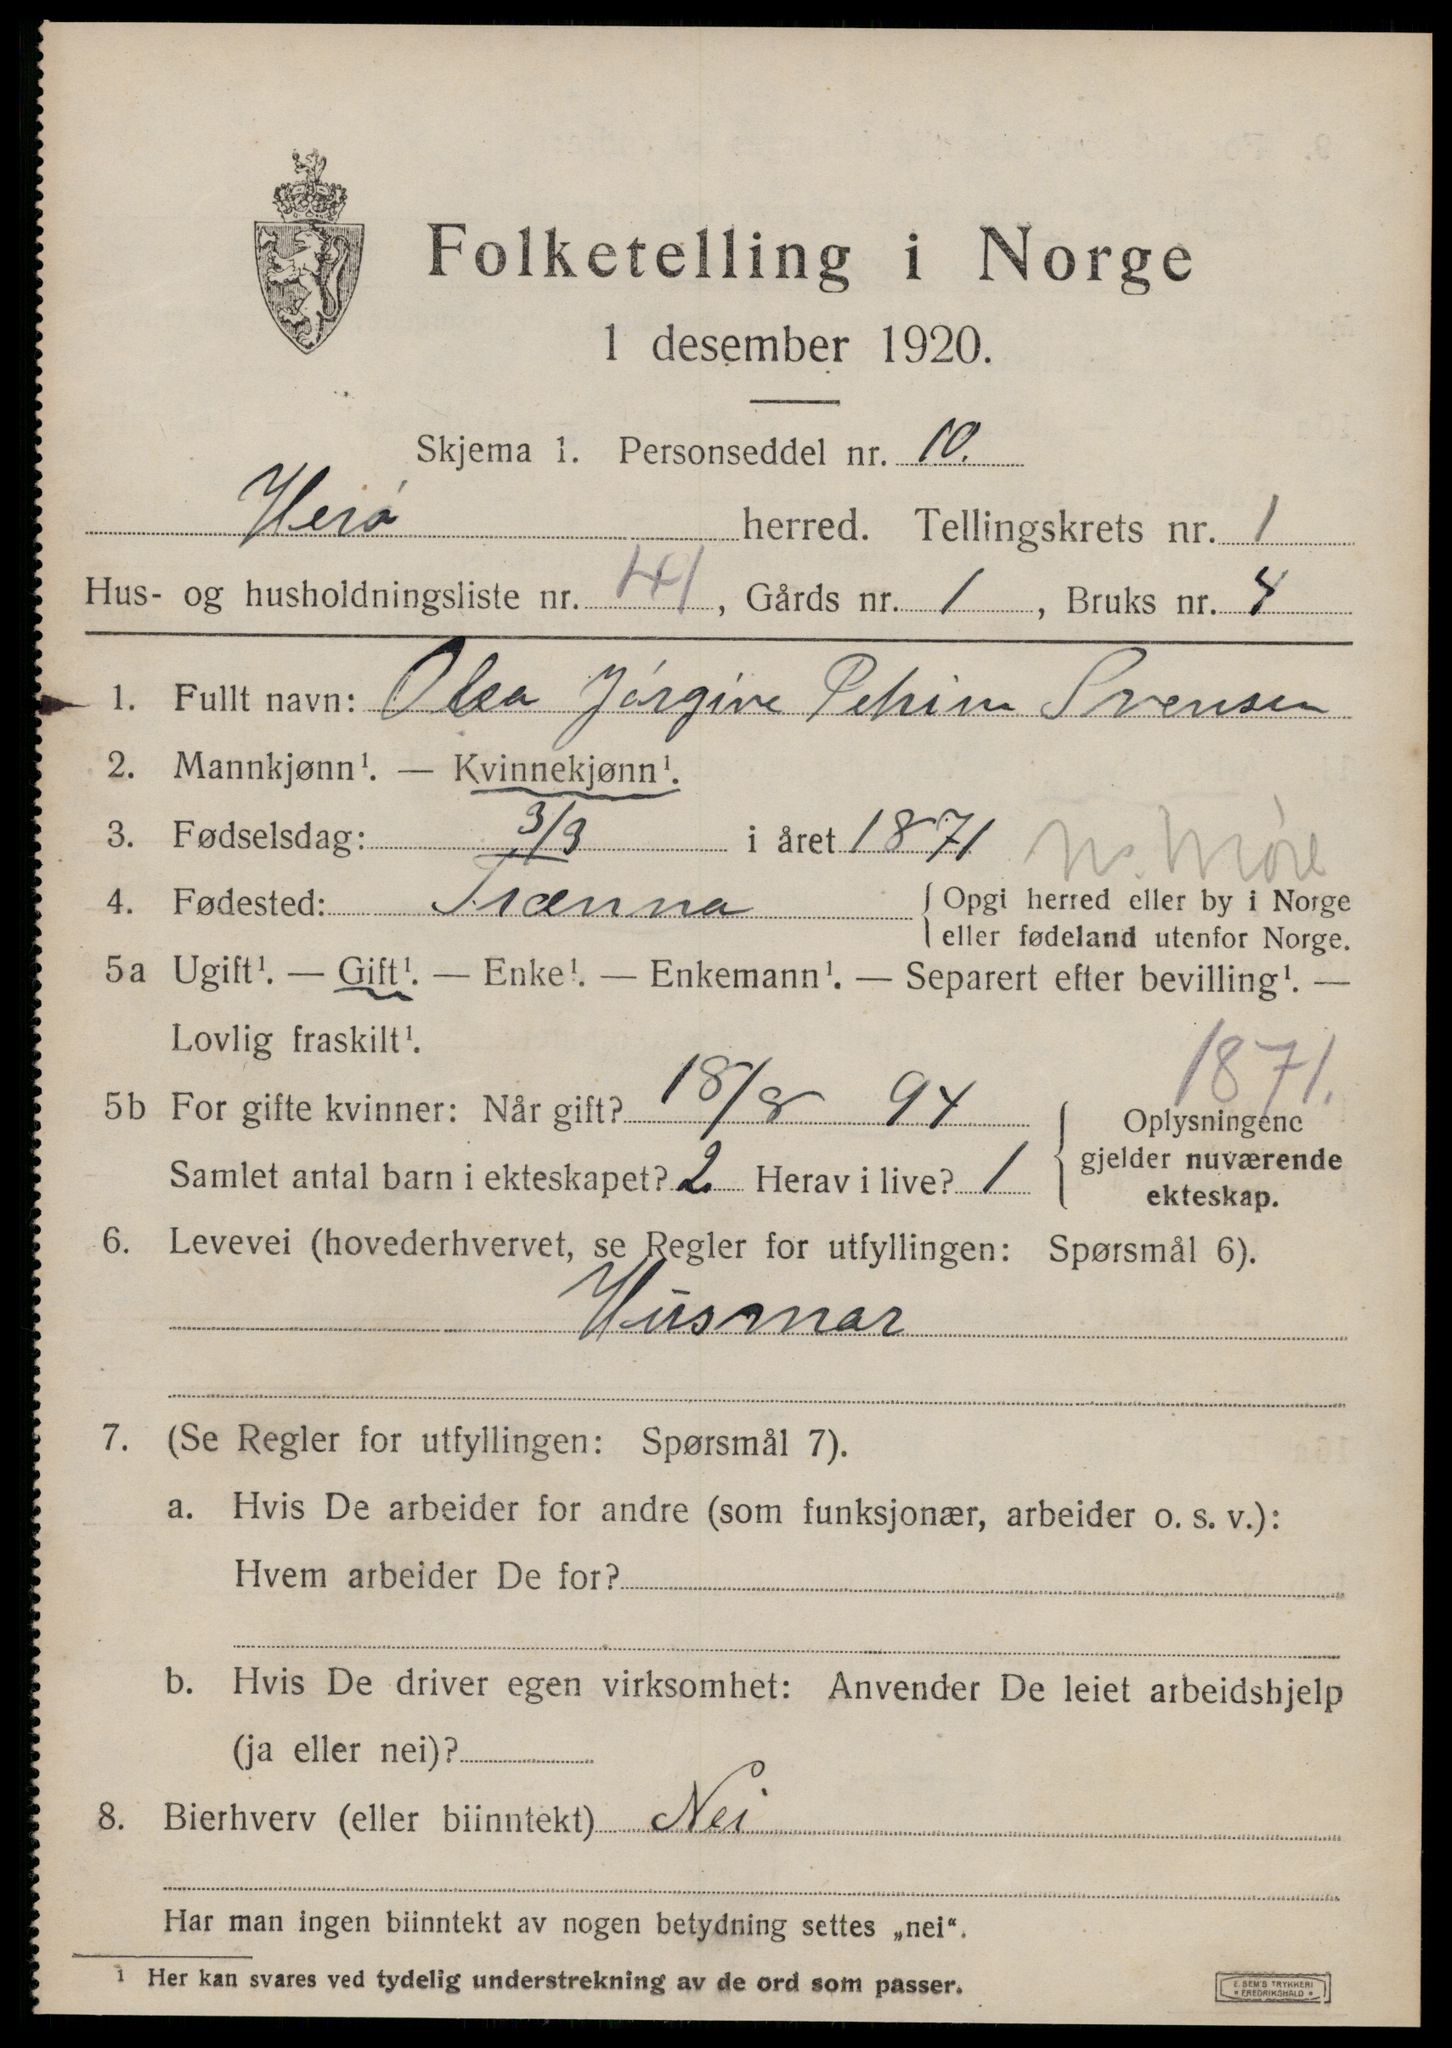 Folketelling i Norge
1 desember 1920.
Skjema 1. Personseddel nr. 10.
Herö herred. Tellingskrets nr. 1
Hus- og husholdningsliste nr. 41, Gårds nr. 1, Bruks nr. 4
1. Fullt navn: Olea Jørgine Svensen
2. Mannkjønn¹. — Kvinnekjønn¹.
3. Fødselsdag: 3/3 i året 1871
4. Fødested: Trænna {Opgi herred eller by i Norge
eller fødeland utenfor Norge.
5a Ugift¹. — Gift¹. — Enke¹. — Enkemann¹. — Separert efter bevilling¹. —
Lovlig fraskilt¹.
1871.
5b For gifte kvinner: Når gift? 18/8 94 {Oplysningene
gjelder nuværende
ekteskap.
Samlet antal barn i ekteskapet? 2. Herav i live? 1
6. Levevei (hovederhvervet, se Regler for utfyllingen: Spørsmål 6).
Husmor
7. (Se Regler for utfyllingen: Spørsmål 7).
a. Hvis De arbeider for andre (som funksjonær, arbeider o. s. v.):
Hvem arbeider De for?
b. Hvis De driver egen virksomhet: Anvender De leiet arbeidshjelp
(ja eller nei)?
8. Bierhverv (eller biinntekt) Nei
Har man ingen biinntekt av nogen betydning settes „nei“.
¹ Her kan svares ved tydelig understrekning av de ord som passer.
E. SEM'S TRYKKERI
* FREDRIKSHALD *